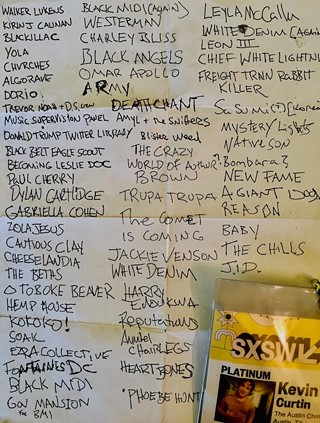 WALKER LUKENS
KIRINJI CALINAN
BLACKILLAC
YOLA
CHVRCHES
ALGORAVE
DORIO
TREVOR NOAH + D.S.
MUSIC SUPERVISION PANEL
DONALD TRUMP TWITTER LIBRARY
BLACK BELT EAGLE SCOUT
BECOMING LESLIE DOC
PAUL CHERRY
DYLAN CARTLIDGE
GABRIELLA COHEN
ZOLA JESUS
CAUTIOUS CLAY
CHEESELANDIA
THE BETHS
OTOBOKE BEAVER
HEMP HOUSE
KOKOKO!
SOAK
EZRA COLLECTIVE
FONTAINES DC
BLACK MIDI
GON MANSION
BMI
BLACK MIDI (AGAIN)
WESTERMAN
CHARLEY BLISS
BLACK ANGELS
OMAR APOLLO
ARMY
DEATHCHANT
AMYL + THE SNIFFERS
Blister Weed
THE CRAZY
WORLD OF ARTHUR
BROWN
TRUPA TRUPA
The COMET
IS COMING
JACKIE VENSON
WHITE DENIM
HARRY
Reputations
CHAIRLEGS
HEARTBONES
PHOEBE HUNT
LEYLA McCalla
WHITE DENIM (Again)
LEON III
CHIEF WHITE LIGHTNIN
FREIGHT TRAIN RABBIT
KILLER
Sasami
MYSTERY Lights
NATIVE SON
Bombara?
NEW FAME
A GIANT DOG
REASON
BABY
THE CHILLS
J.I.D.
SXSW
PLATINUM
Kevin
Curtin
The Austin Chr
Austin, TX